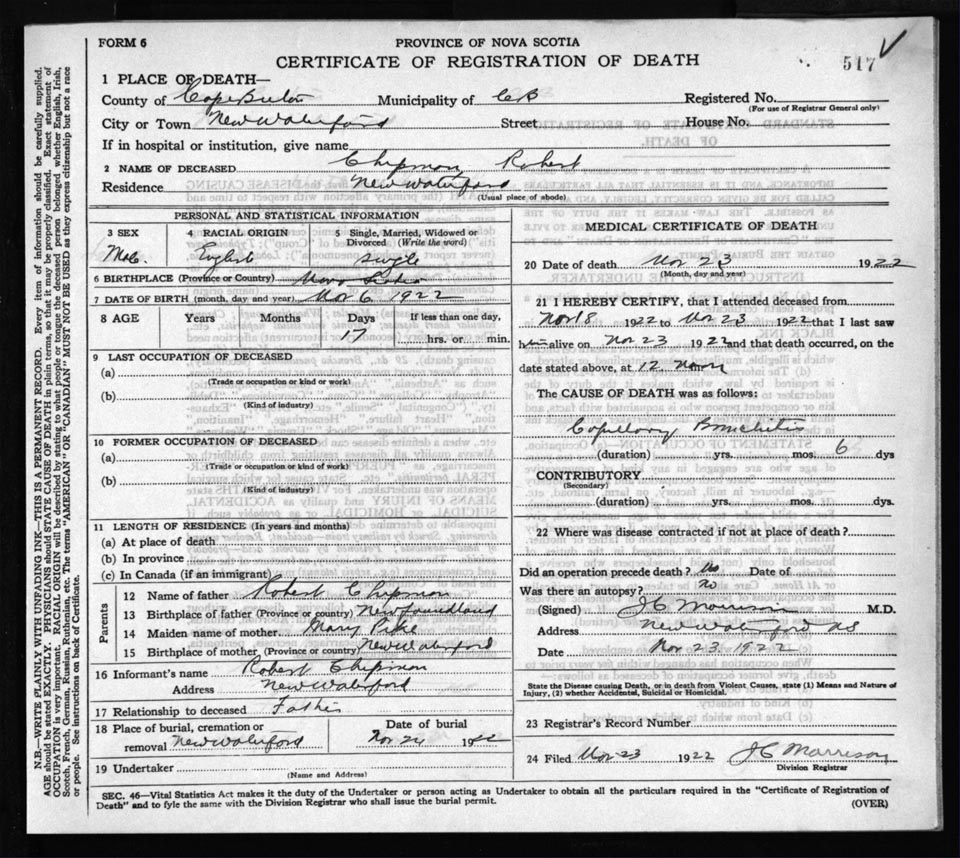 FORM 6
PROVINCE OF NOVA SCOTIA
CERTIFICATE OF REGISTRATION OF DEATH
517
1 PLACE OF DEATH—
County of Cape Breton Municipality of CB Registered No.
(For use of Registrar General only)
City or Town New Waterford Street House No.
If in hospital or institution, give name
2 NAME OF DECEASED Chipman Robert
Residence New Waterford
(Usual place of abode)
PERSONAL AND STATISTICAL INFORMATION
3 SEX 4 RACIAL ORIGIN 5 Single, Married, Widowed or Divorced (Write the word)
Male English Single
6 BIRTHPLACE (Province or Country) Nova Scotia
7 DATE OF BIRTH (month, day and year) Nov 6 1922
8 AGE Years Months Days If less than one day,
17 hrs. or min.
9 LAST OCCUPATION OF DECEASED
(a)
(Trade or occupation or kind or work)
(b)
(Kind of industry)
10 FORMER OCCUPATION OF DECEASED
(a)
(Trade or occupation or kind or work)
(b)
(Kind of industry)
11 LENGTH OF RESIDENCE (In years and months)
(a) At place of death
(b) In province
(c) In Canada (if an immigrant)
Parents
12 Name of father Robert Chipman
13 Birthplace of father (Province or country) Newfoundland
14 Maiden name of mother Mary Pike
15 Birthplace of mother (Province or country) New Waterford
16 Informant's name Robert Chipman
Address New Waterford
17 Relationship to deceased Father
18 Place of burial, cremation or Date of burial
removal New Waterford Nov 24 1922
19 Undertaker
(Name and Address)
MEDICAL CERTIFICATE OF DEATH
20 Date of death Nov 23 1922
(Month, day and year)
21 I HEREBY CERTIFY, that I attended deceased from
Nov 18 1922 to Nov 23 1922 that I last saw
him alive on Nov 23 1922 and that death occurred, on the
date stated above, at 12 Noon
The CAUSE OF DEATH was as follows:
Capillary Bronchitis
(duration) yrs. mos. 6 dys
CONTRIBUTORY
(Secondary)
(duration) yrs. mos. dys.
22 Where was disease contracted if not at place of death?
Did an operation precede death? No Date of
Was there an autopsy? No
(Signed) J C Morrison M.D.
Address New Waterford NS
Date Nov 23 1922
State the Disease causing Death, or in death from Violent Causes, state (1) Means and Nature of
Injury, (2) whether Accidental, Suicidal or Homicidal.
23 Registrar's Record Number
24 Filed Nov 23 1922 J C Morrison
Division Registrar
SEC. 46—Vital Statistics Act makes it the duty of the Undertaker or person acting as Undertaker to obtain all the particulars required in the "Certificate of Registration of
Death" and to fyle the same with the Division Registrar who shall issue the burial permit. (OVER)
N.B.—WRITE PLAINLY WITH UNFADING INK—THIS IS A PERMANENT RECORD. Every item of information should be carefully supplied.
AGE should be stated EXACTLY. PHYSICIANS should STATE CAUSE OF DEATH in plain terms, so that it may be properly classified. Exact statement of
OCCUPATION is very important. RACIAL ORIGIN will be described by stating to what people or tongue the deceased person belonged, whether English, Irish,
Scotch, French, German, Russian, Ruthenian, etc. The terms "AMERICAN" OR "CANADIAN" MUST NOT BE USED as they express citizenship but not a race
or people. See instructions on back of Certificate.